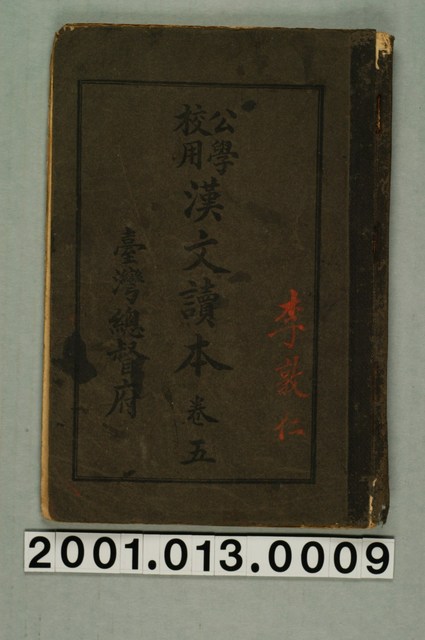 李敦仁
公學
校用
漢文讀本 卷五
臺灣總督府
2001.013.0009